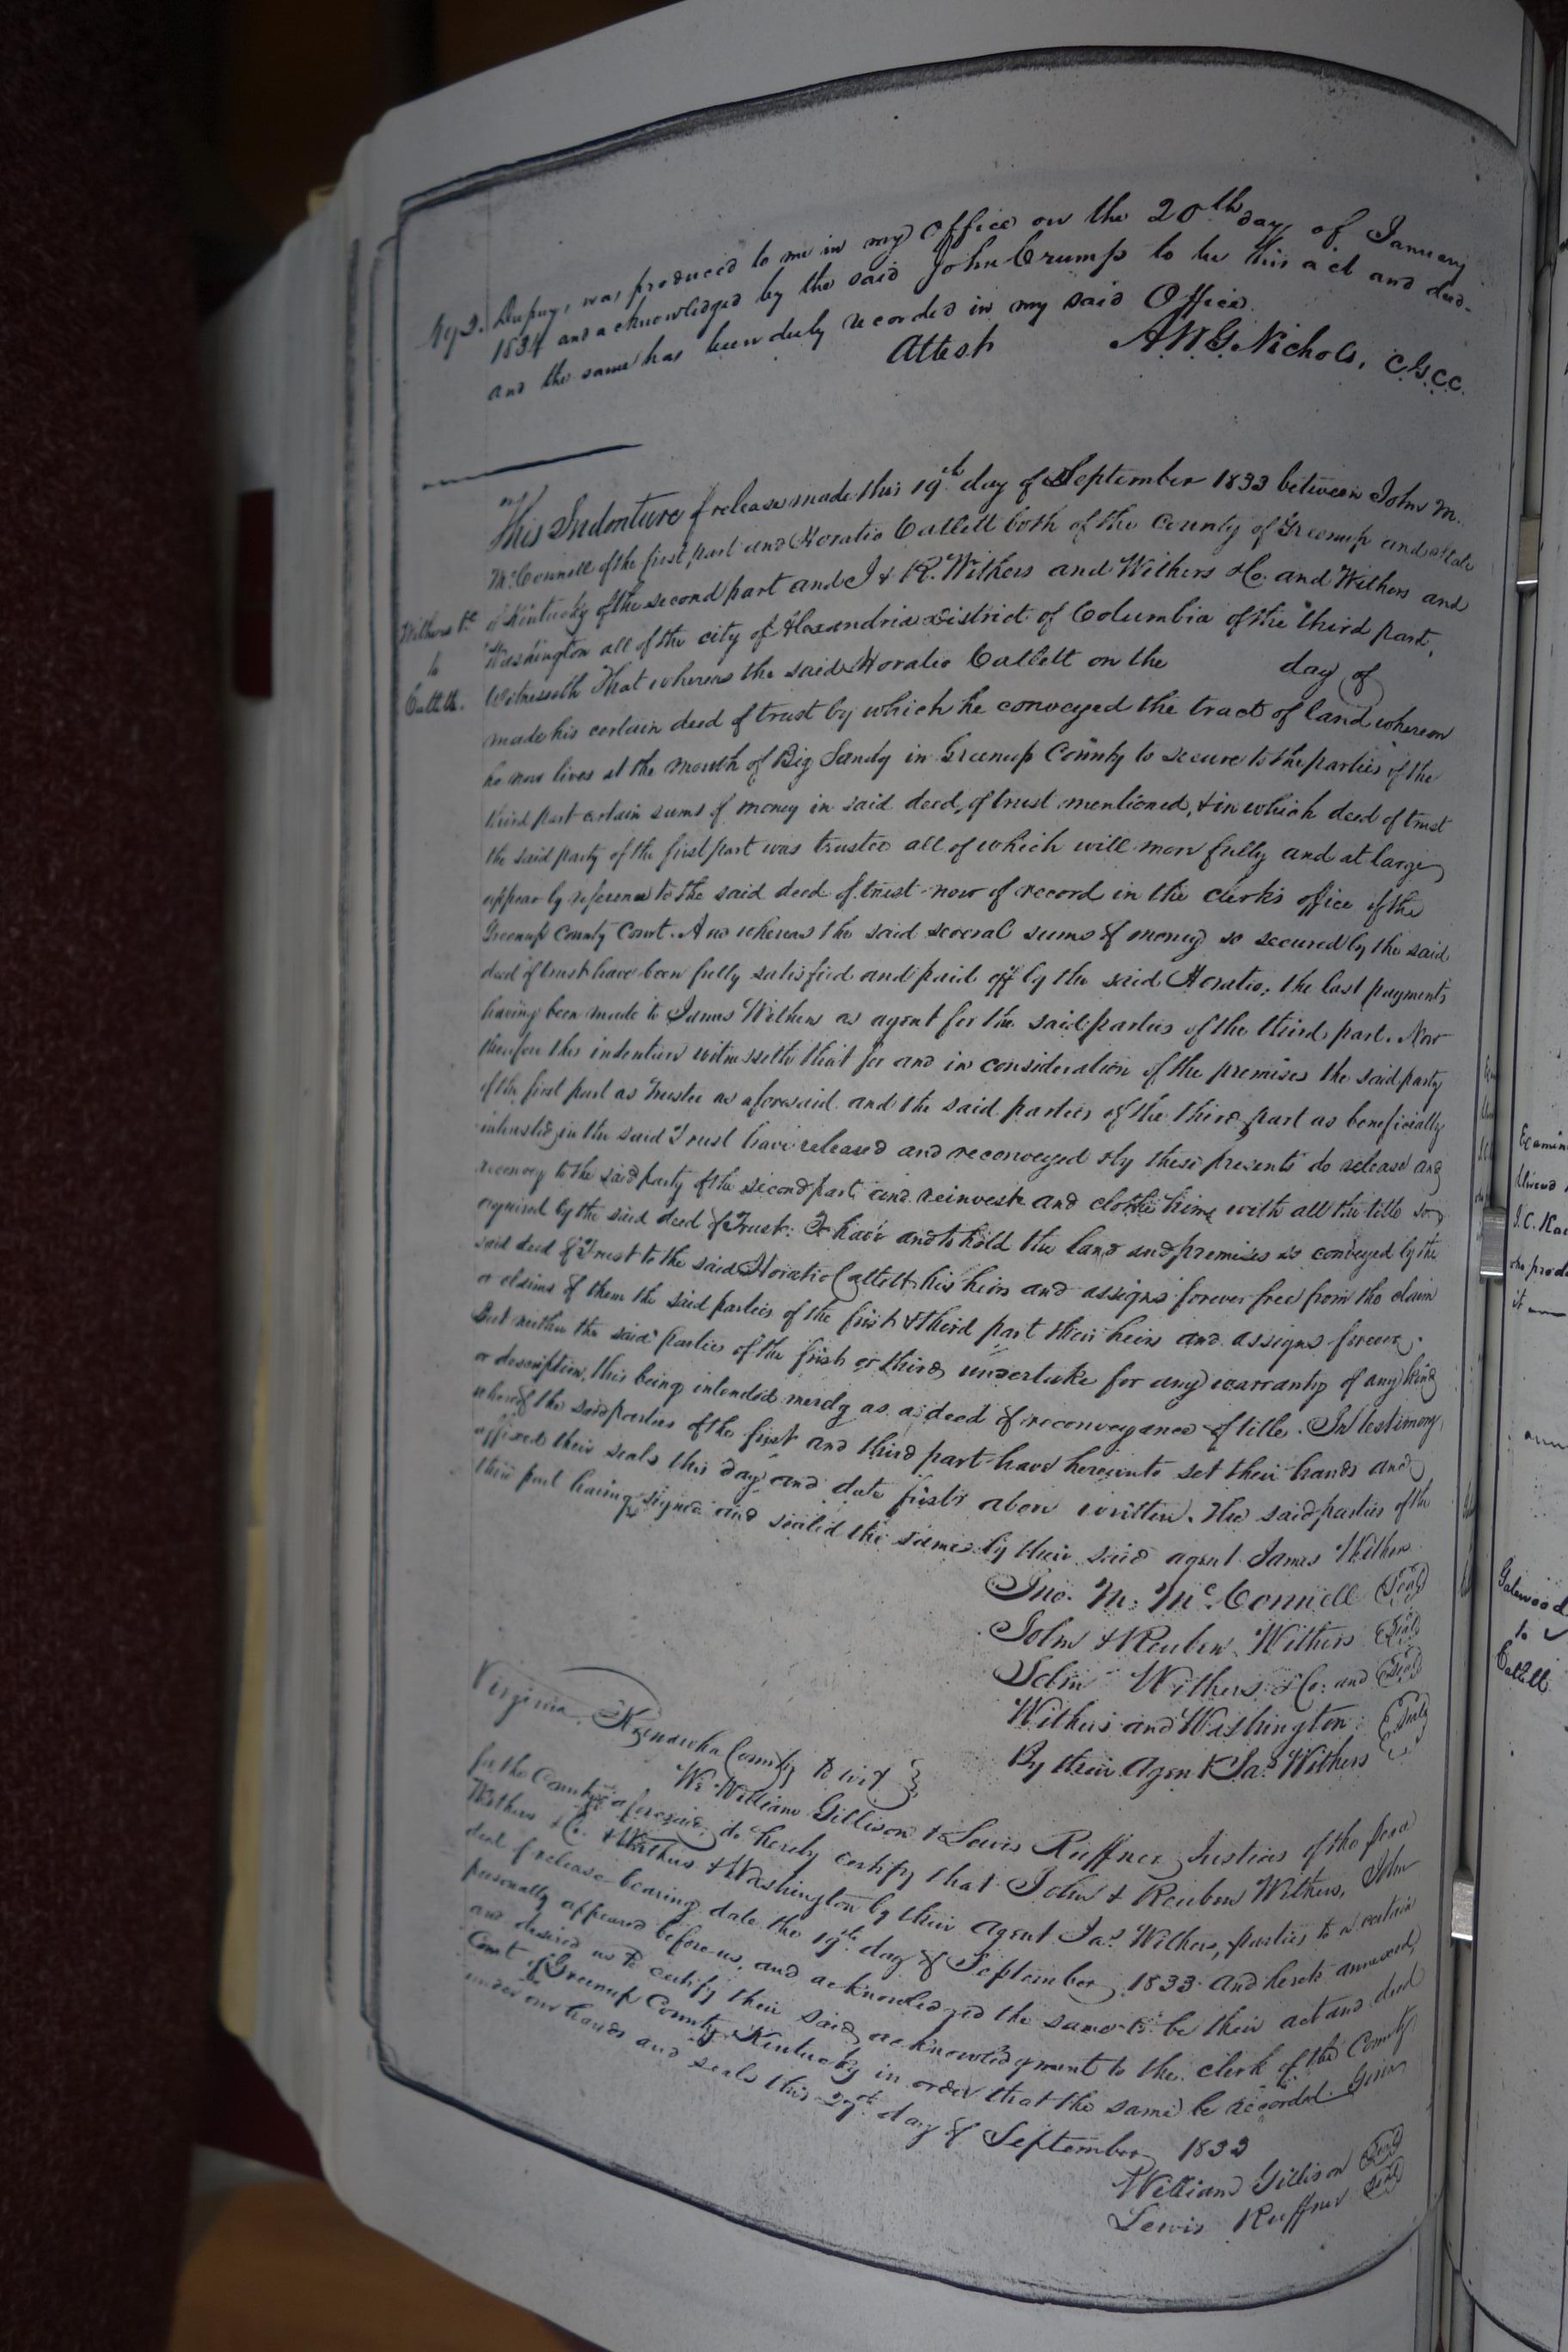 Dupuy, was produced to me in my Office on the 20th day of January
1834 and acknowledged by the said John Crump to be his act and deed.
and the same has been duly recorded in my said Office.
Attest A.W.G. Nichols, C.G.C.C.
This Indenture of release made this 19th day of September 1833 between John M.
McConnell of the first part and Horatio Catlett both of the County of Greenup and State
of Kentucky of the second part and J & R. Withers and Withers & Co. and Withers and
Withers &c
to
Catlett.
Washington all of the city of Alexandria District of Columbia of the third part,
Witnesseth That whereas the said Horatio Catlett on the day of
made his certain deed of trust by which he conveyed the tract of land whereon
he now lives at the mouth of Big Sandy in Greenup County to secure to the parties of the
third part certain sums of money in said deed of trust mentioned, & in which deed of trust
the said party of the first part was trustee all of which will more fully and at large
appear by reference to the said deed of trust now of record in the clerks office of the
Greenup County Court. And whereas the said several sums of money so secured by the said
deed of trust have been fully satisfied and paid off by the said Horatio, the last payments
having been made to James Withers as agent for the said parties of the third part. Now
therefore this indenture witnesseth that for and in consideration of the premises the said party
of the first part as Trustee as aforesaid and the said parties of the third part as beneficially
interested in the said Trust have released and reconveyed & by these presents do release and
reconvey to the said party of the second part and reinvest and clothe him with all the title so
acquired by the said deed of Trust: To have and to hold the land and premises so conveyed by the
said deed of Trust to the said Horatio Catlett his heirs and assigns forever free from the claim
or claims of them the said parties of the first & third part their heirs and assigns forever.
But neither the said parties of the first or third undertake for any warranty of any kind
or description, this being intended merely as a deed of reconveyance of title. In testimony
whereof the said parties of the first and third part have hereunto set their hands and
affixed their seals this day and date first above written. The said parties of the
third part having signed and sealed the same by their said agent James Withers
Jno. M. McConnell Seal
John & Reuben Withers Seal
John Withers & Co: and Seal
Withers and Washington Seal
By their Agent Jas Withers
Virginia, Kanawha County to wit
We William Gillison & Lewis Ruffner Justices of the peace
for the County aforesaid, do hereby certify that John & Reuben Withers, John
Withers & Co. & Withers & Washington by their Agent Jas. Withers, parties to a certain
deed of release bearing date the 19th day of September 1833 and hereto annexed,
personally appeared before us, and acknowledged the same to be their act and deed
and desired us to certify their said acknowledgment to the clerk of the County
Court of Greenup County Kentucky in order that the same be recorded. Given
under our hands and seals this 27th day of September 1833
William Gillison Seal
Lewis Ruffner Seal
Gatewood
to
Catlett